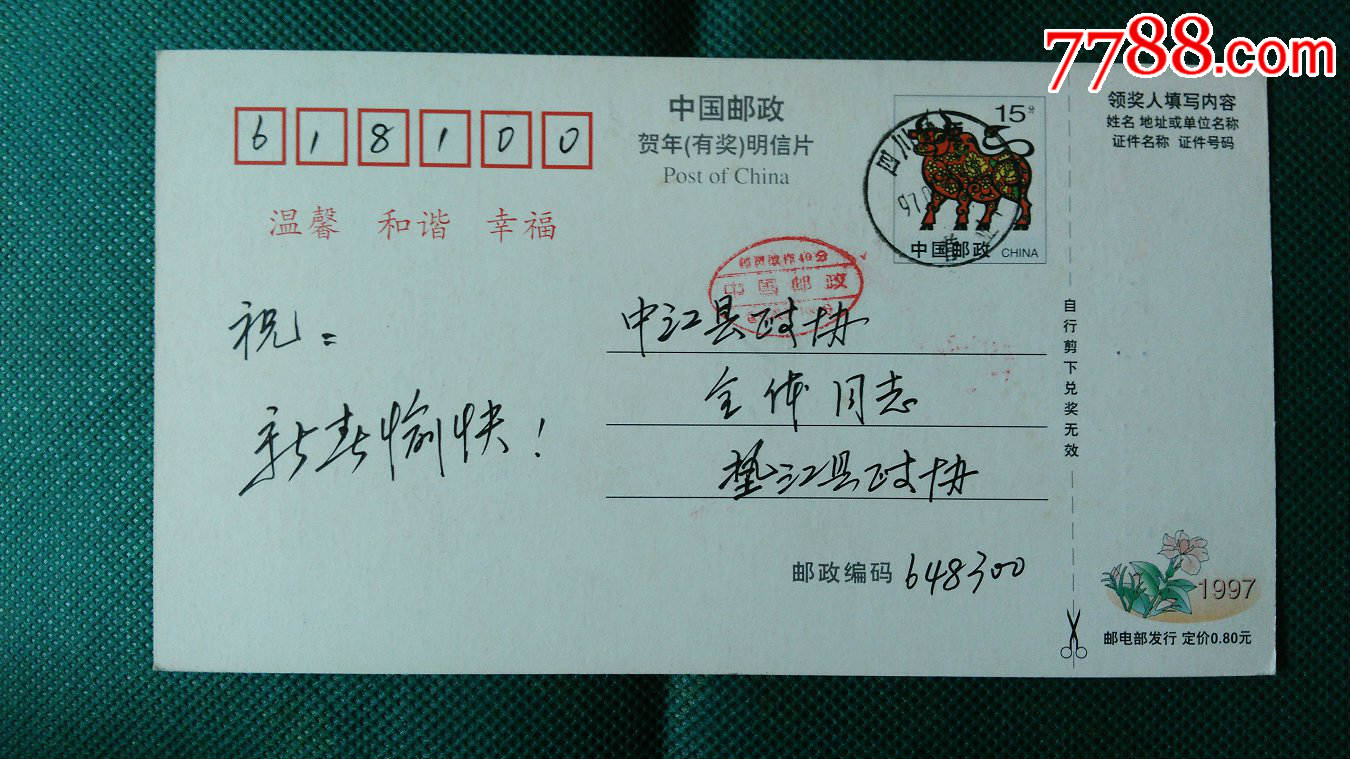 7788.com
618100
中国邮政
贺年(有奖)明信片
Post of China
温馨 和谐 幸福
15分
四川
97.
中国邮政 CHINA
中国邮政
祝:
新春愉快!
中江县政协
全体同志
垫江县政协
邮政编码 648300
领奖人填写内容
姓名 地址或单位名称
证件名称 证件号码
自行剪下兑奖无效
1997
邮电部发行 定价0.80元